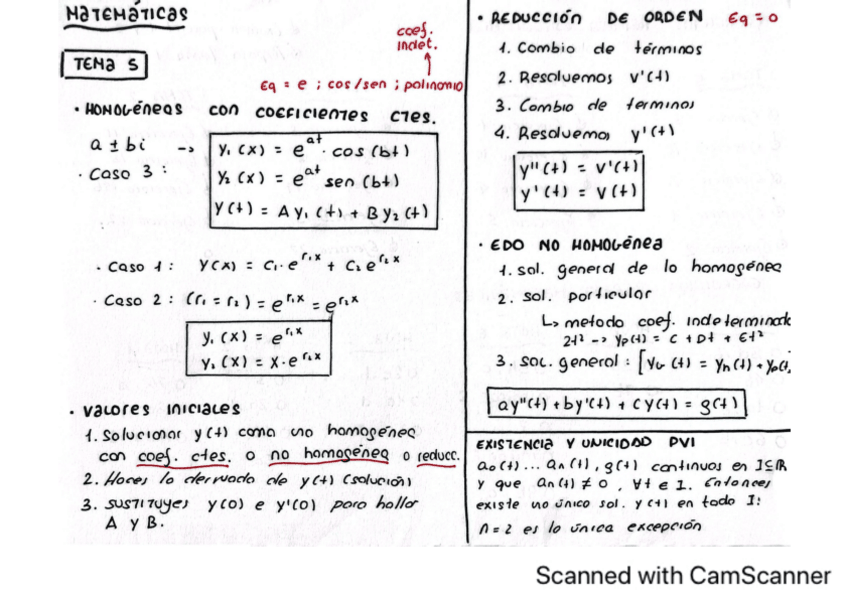 MATEMÁTICAS
TEMA 5
coef.
indet.
Eq = e ; cos/sen ; polinomio
· HOMOGÉNEAS CON COEFICIENTES CTES.
a ± bi →
· Caso 3 :
y₁ (x) = e^at · cos (bt)
y₂ (x) = e^at sen (bt)
y(t) = A y₁ (t) + B y₂ (t)
· Caso 1 : y(x) = C₁ · e^r₁x + C₂ e^r₂x
· Caso 2 : (r₁ = r₂) = e^r₁x = e^r₂x
y₁ (x) = e^r₁x
y₂ (x) = x · e^r₂x
· VALORES INICIALES
1. Solucionar y(t) como una homogénea
con coef. ctes. o no homogénea o reducc.
2. Haces la derivada de y(t) (solución)
3. SUSTITUYES y(0) e y'(0) para hallar
A y B.
· REDUCCIÓN DE ORDEN Eq = 0
1. Cambio de términos
2. Resolvemos v'(t)
3. Cambio de terminos
4. Resolvemos y'(t)
y''(t) = v'(t)
y'(t) = v(t)
· EDO NO HOMOGÉNEA
1. sol. general de la homogénea
2. sol. particular
↳ metodo coef. indeterminado
2t² → yp(t) = C + Dt + Et²
3. sol. general : [yG (t) = yh (t) + yp(t)
ay''(t) + by'(t) + cy(t) = g(t)
EXISTENCIA Y UNICIDAD PVI
a₀(t) ... an(t), g(t) continuos en I⊆ℝ
y que an(t) ≠ 0 , ∀t ∈ I. Entonces
existe una única sol. y(t) en todo I:
n = 2 es la única excepción
Scanned with CamScanner